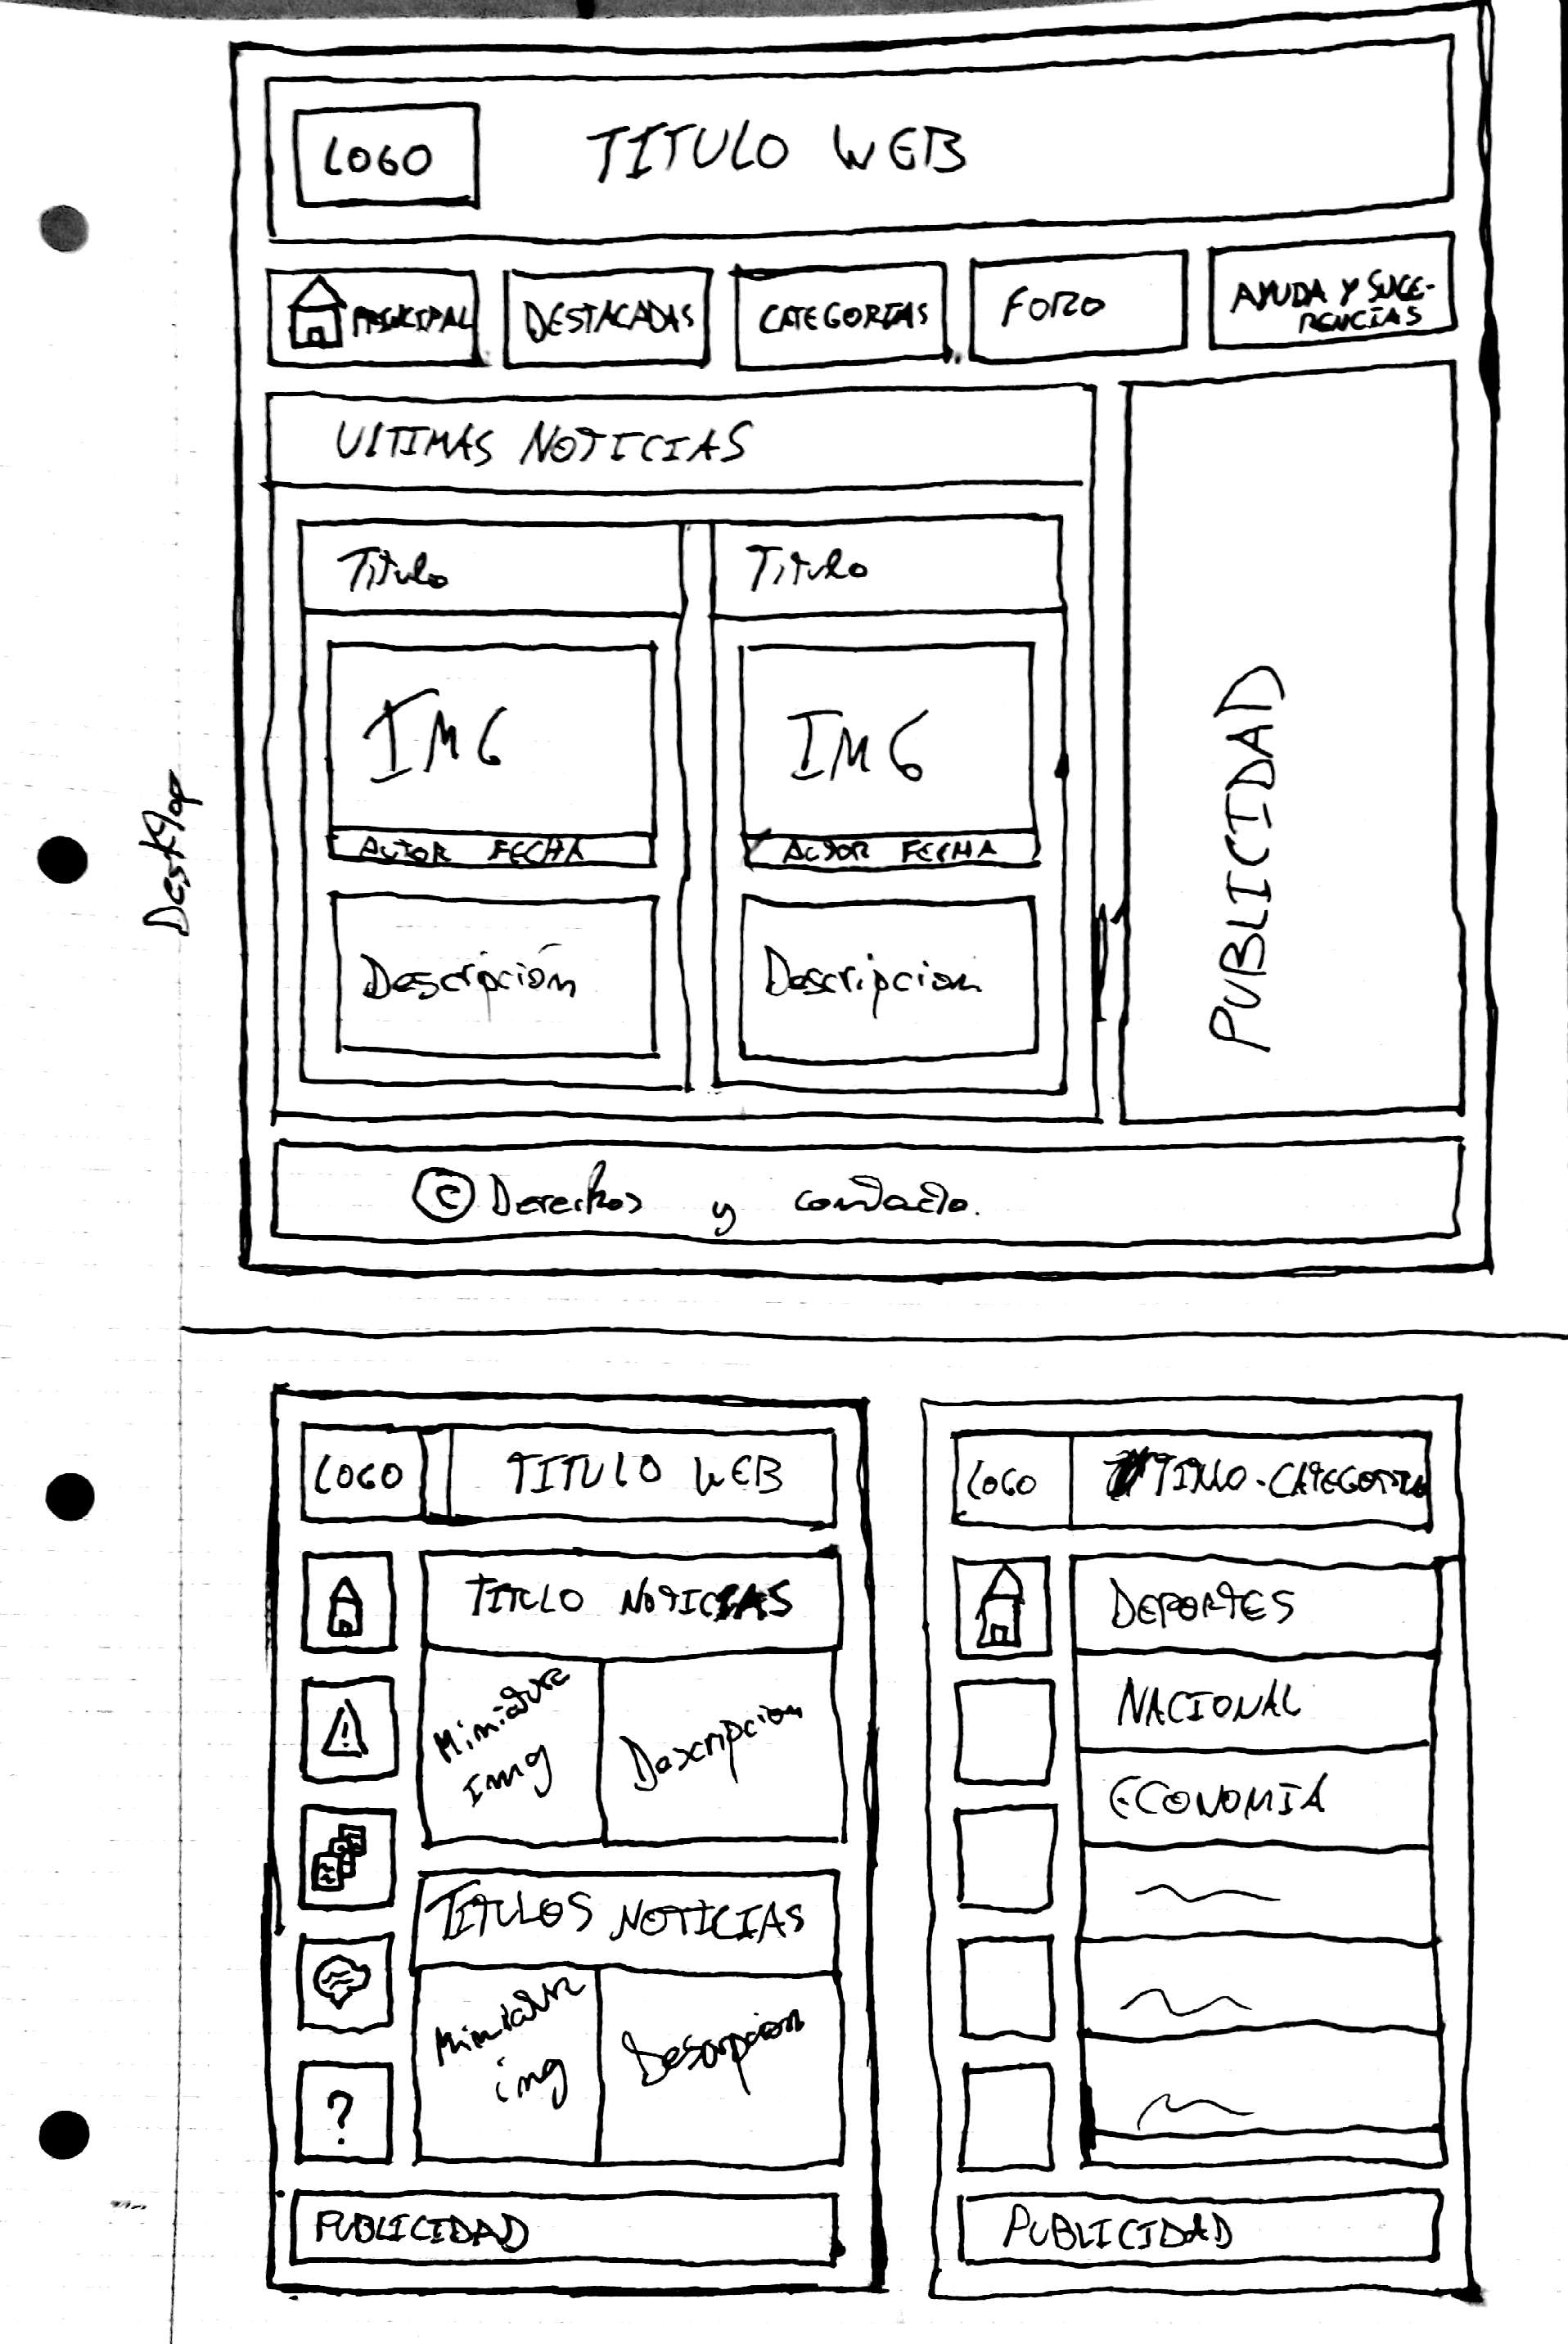 LOGO
TITULO WEB
PRINCIPAL
DESTACADAS
CATEGORIAS
FORO
AYUDA Y SUGE-
RENCIAS
ULTIMAS NOTICIAS
Titulo
Titulo
IMG
IMG
AUTOR FECHA
AUTOR FECHA
Descripción
Descripcion
PUBLICIDAD
© Derechos y contacto.
Desktop
LOGO
TITULO WEB
!
?
TITULO NOTICIAS
Miniatura
Img
Descripcion
TITULOS NOTICIAS
Miniatura
img
Descripcion
PUBLICIDAD
LOGO
TITULO - CATEGORIA
DEPORTES
NACIONAL
ECONOMIA
PUBLICIDAD